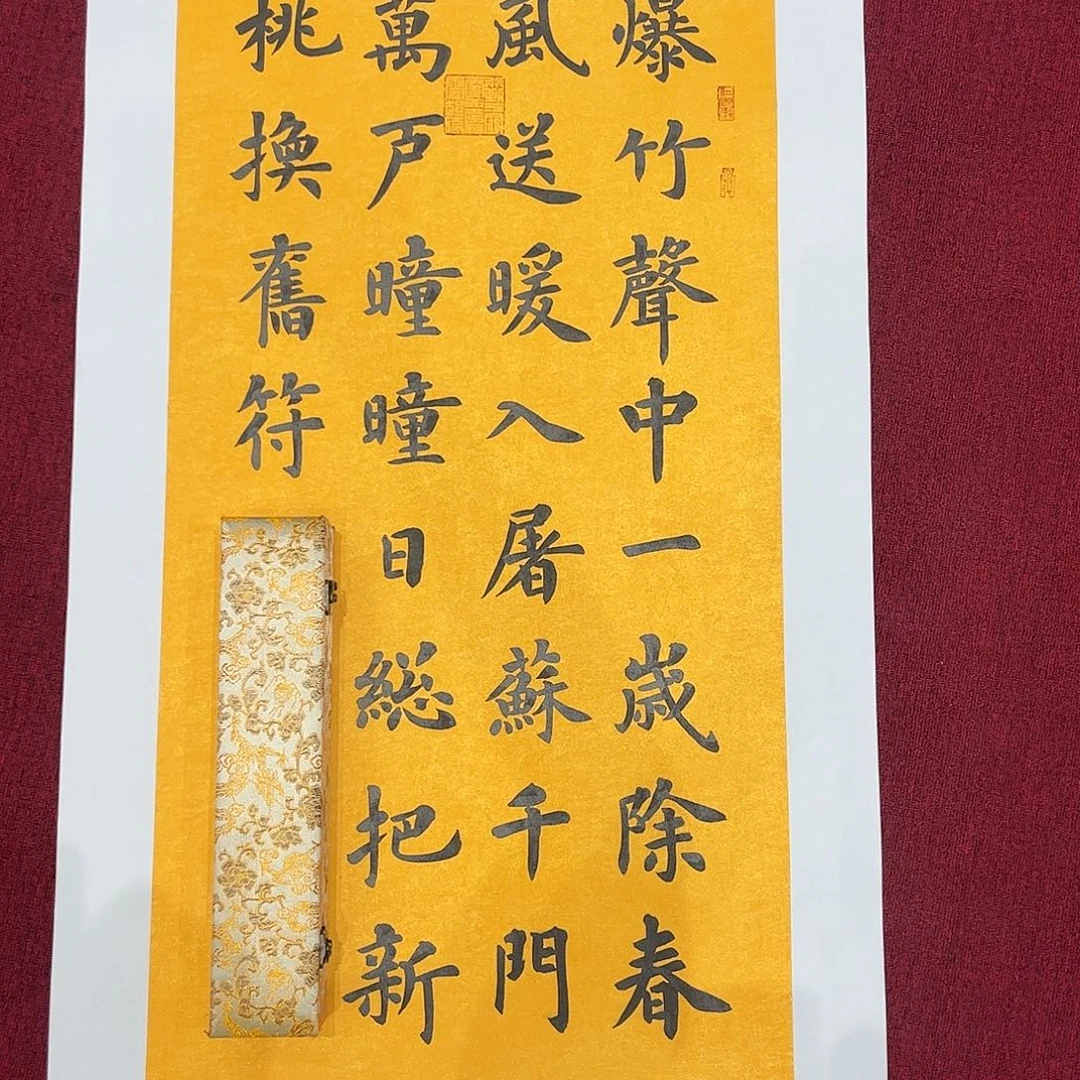 爆竹聲中一歳除春
風送暖入屠蘇千門
萬戸曈曈日総把新
桃換舊符